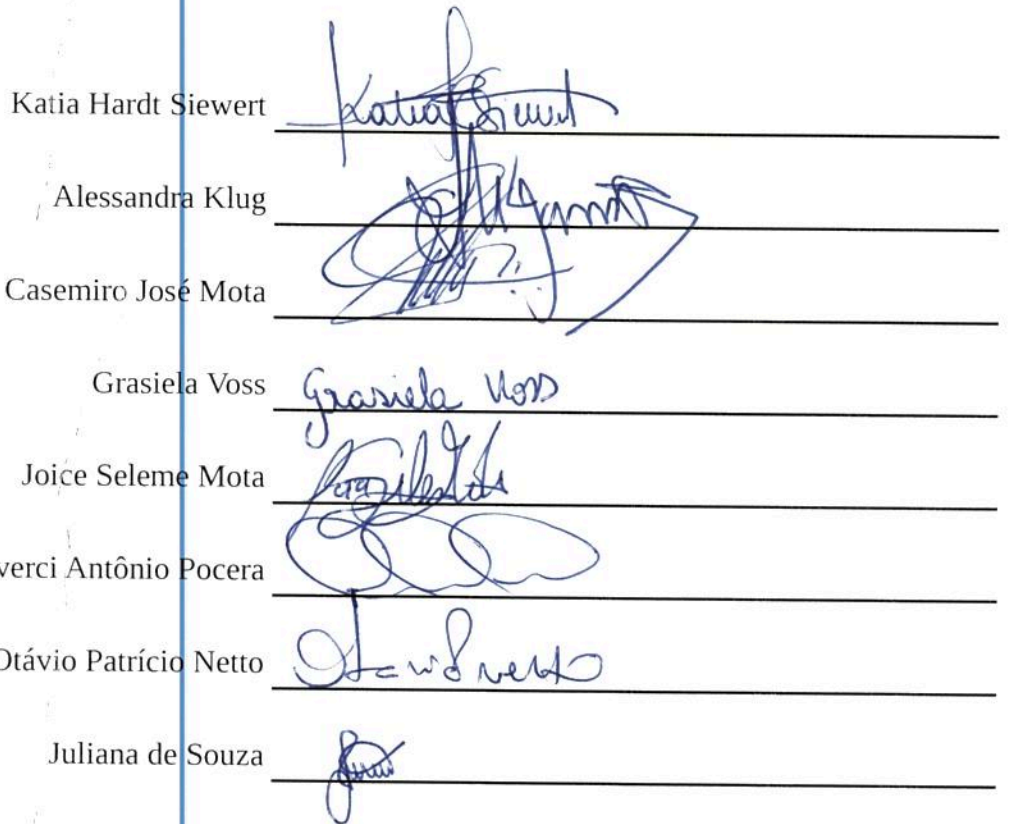 Katia Hardt Siewert Katia Siewert
Alessandra Klug
Casemiro José Mota
Grasiela Voss Grasiela Voss
Joice Seleme Mota
verci Antônio Pocera
Otávio Patrício Netto
Juliana de Souza